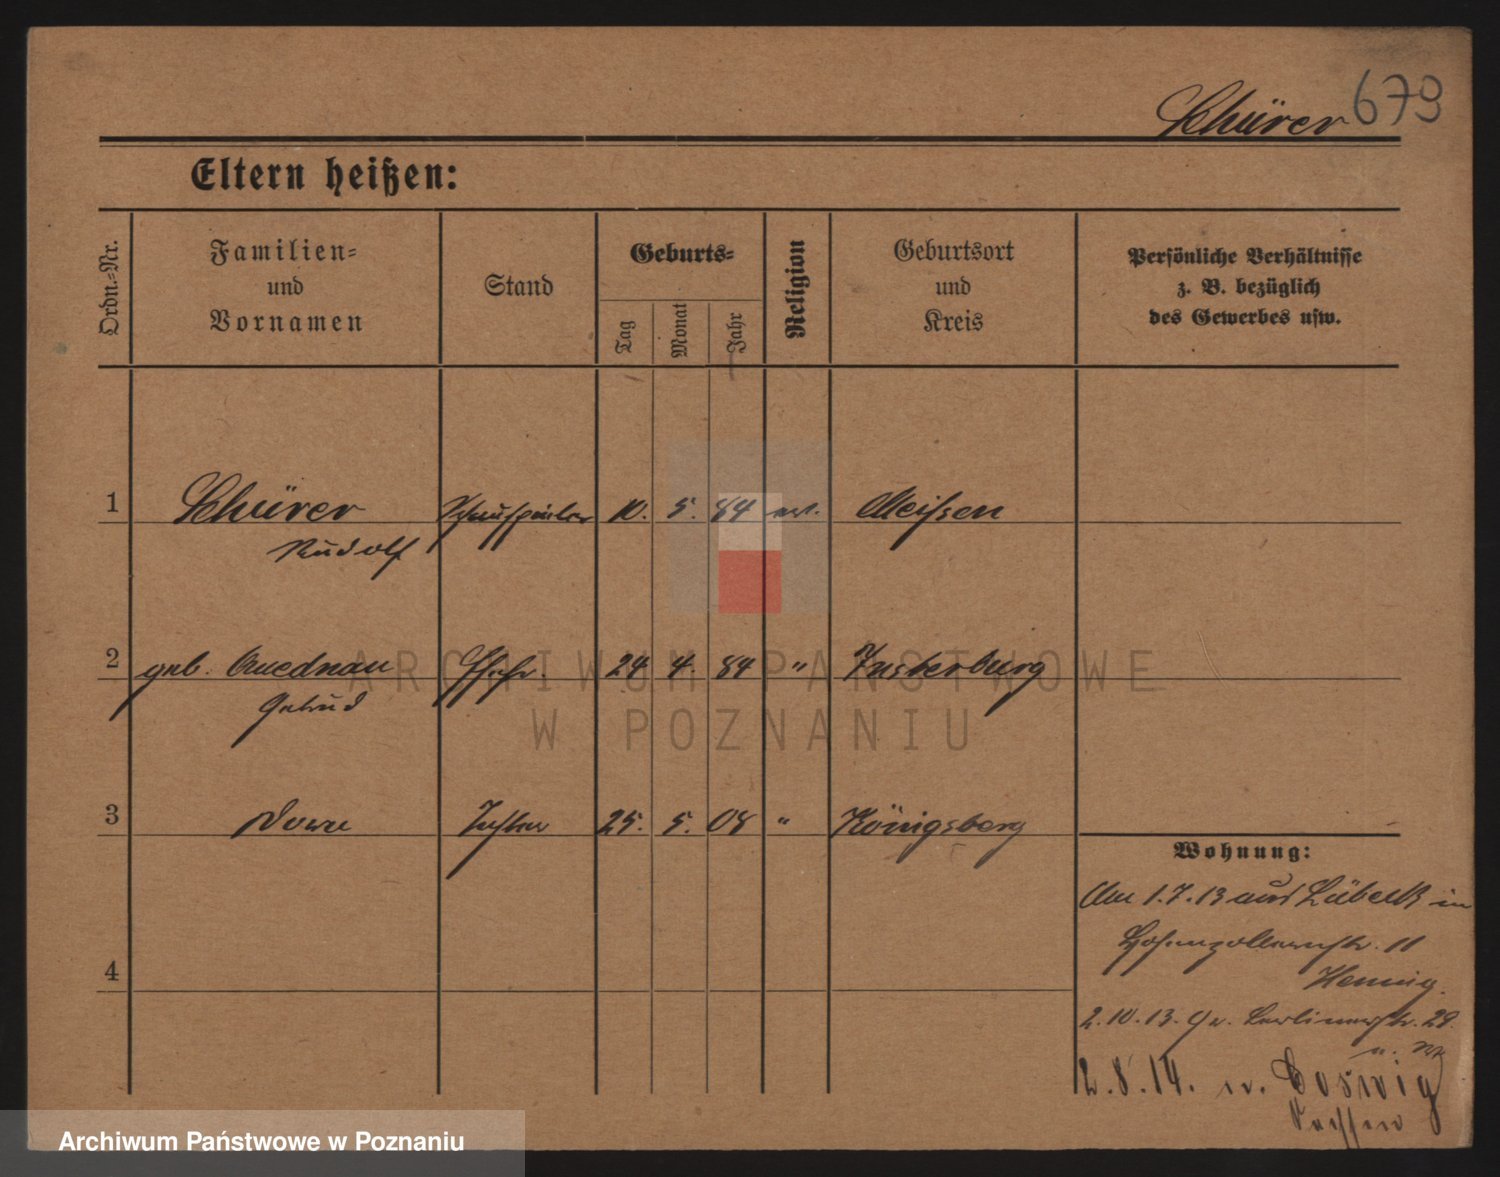 Schürer 679
Eltern heißen:
Ordn.-Nr.
Familien-
und
Vornamen
Stand
Geburts-
Tag
Monat
Jahr
Religion
Geburtsort
und
Kreis
Persönliche Verhältnisse
z. B. bezüglich
des Gewerbes usw.
1 Schürer Schauspieler 10. 5. 84 ev. Meißen
Rudolf
2 geb. Quednau Ehefr. 24 4. 84 " Insterburg
Gertrud
3 Tochter 25. 5. 08 " Königsberg
4
Wohnung:
Am 1.7.13 aus Lübeck in
Hohenzollernstr. 11
Hennig.
2.10.13. Gr. Berlinerstr. 29.
2.8.14. n. Coswig
Sachsen
ARCHIWUM PAŃSTWOWE
W POZNANIU
Archiwum Państwowe w Poznaniu